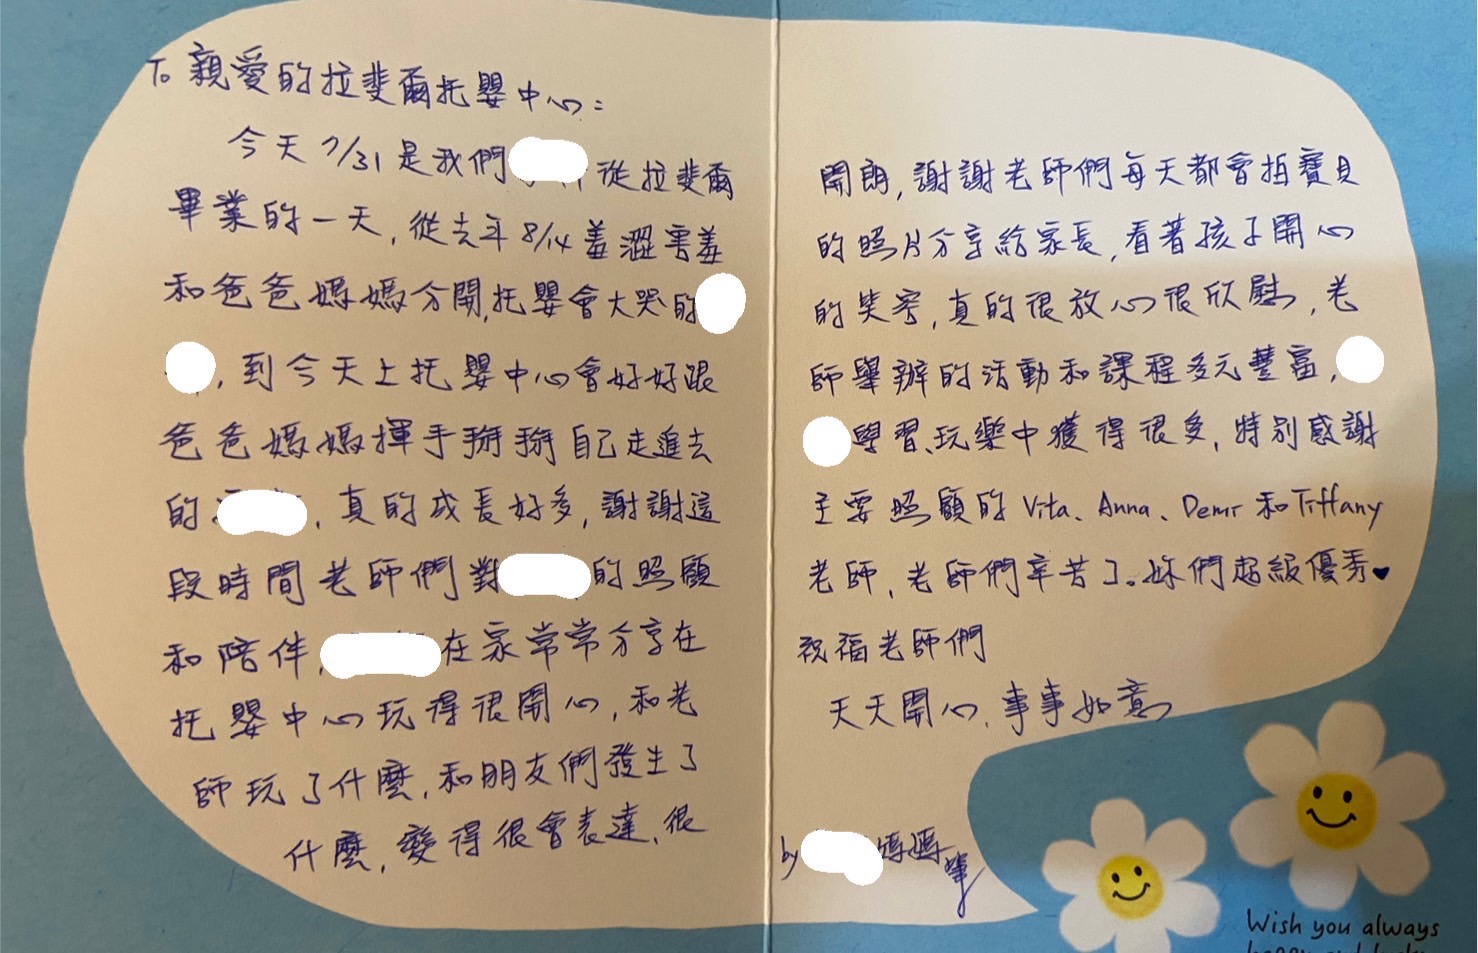 To 親愛的拉斐爾托嬰中心:
今天7/31是我們 從拉斐爾
畢業的一天,從去年8/14羞澀害羞
和爸爸媽媽分開,托嬰會大哭的
,到今天上托嬰中心會好好跟
爸爸媽媽揮手掰掰自己走進去
的 ,真的成長好多,謝謝這
段時間老師們對 的照顧
和陪伴, 在家常常分享在
托嬰中心玩得很開心,和老
師玩了什麼,和朋友們發生了
什麼,變得很會表達、很
開朗,謝謝老師們每天都會拍寶貝
的照片分享給家長,看著孩子開心
的笑容,真的很放心很欣慰,老
師舉辦的活動和課程多元豐富,
學習、玩樂中獲得很多,特別感謝
主要照顧的Vita、Anna、Demi和Tiffany
老師,老師們辛苦了。妳們超級優秀♥
祝福老師們
天天開心、事事如意
by 媽媽筆
Wish you always